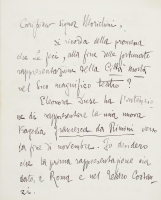 Carissimo Signor Morichini,
si ricorda della promessa
che Le feci, alla fine delle fortunate
rappresentazioni della Città morta
nel Suo magnifico teatro?
Eleonora Duse ha l'intenzio-
ne di rappresentare la mia nuova
tragedia Francesca da Rimini verso
la fine di novembre. Io desidero
che la prima rappresentazione sia
data a Roma e nel Teatro Costan-
zi.